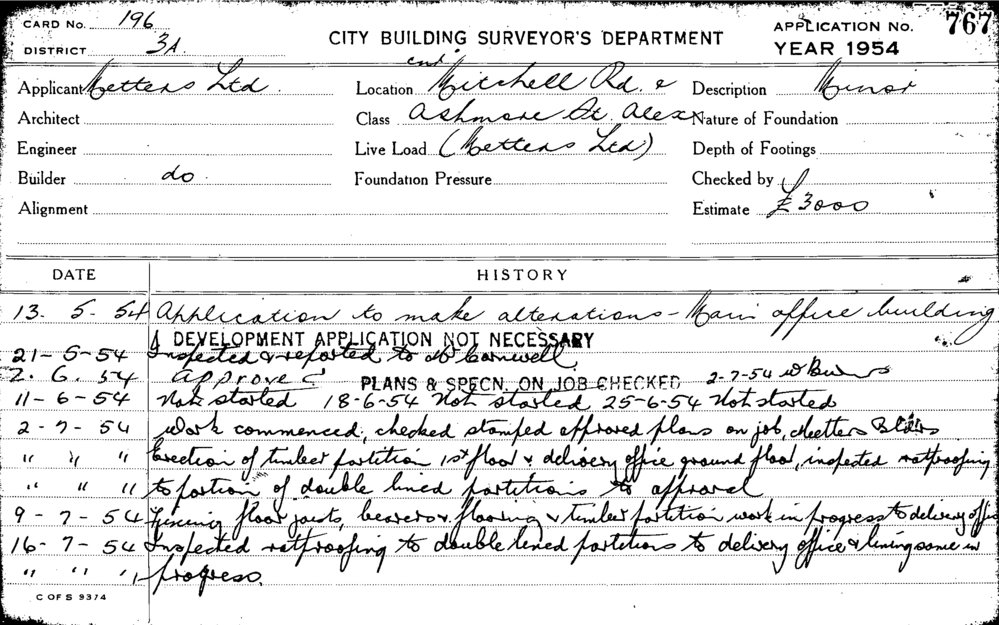 CARD No. 196
DISTRICT 3A
CITY BUILDING SURVEYOR'S DEPARTMENT
APPLICATION No. 767
YEAR 1954
Applicant Metters Ltd.
Location cnr Mitchell Rd. &
Description Minor
Architect
Class Ashmore St. Alex
Nature of Foundation
Engineer
Live Load (Metters Ltd)
Depth of Footings
Builder do
Foundation Pressure
Checked by
Alignment
Estimate £3000
DATE HISTORY
13. 5. 54 Application to make alterations - Main office building
DEVELOPMENT APPLICATION NOT NECESSARY
21-5-54 Inspected & reported to Mr
2. 6. 54 Approved PLANS & SPECN. ON JOB CHECKED 2-7-54
11-6-54 Not started 18-6-54 Not started 25-6-54 Not started
2-7-54 Work commenced, checked stamped approved plans on job, Metters Bldrs
" " " Erection of timber partition 1st floor & delivery office ground floor, inspected ratproofing
" " " to portion of double lined partitions to approval
9-7-54 Fixing floor joists, bearers & flooring & timber partition work in progress to delivery office
16-7-54 Inspected ratproofing to double lined partitions to delivery office & lining same in
" " " progress.
C OF S 9374